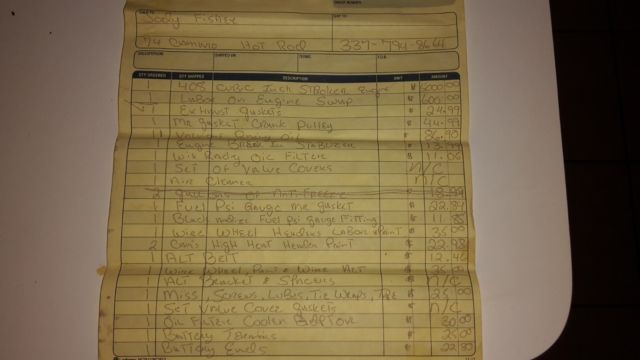 Jody Fisher
74 Camaro Hot Rod 337-794-8664
QTY ORDERED QTY SHIPPED DESCRIPTION UNIT AMOUNT
1 408 Cubic Inch Stroker Engine $ 6000.00
1 Labor on Engine Swap $ 600.00
1 Exhaust Gaskets $ 24.99
1 Mr Gasket Crank Pulley $ 44.99
11 Racing Oil $ 86.90
1 Engine Break In $ 13.99
1 Wix Radiq Oil Filter $ 11.06
1 Set of Valve Covers N/C
Air Cleaner N/C
2 Gallons of Anti-Freeze
1 Fuel Psi Gauge Mr Gasket $ 22.84
1 Black Fuel Psi Gauge Fitting $ 11.85
1 Wire Wheel Headers Labor Paint $ 35.00
2 Cans High Heat Header Paint $ 22.98
1 Alt Belt $ 12.46
1 Wire Wheel, Paint & Wire Alt $ 25.00
1 Alt Bracket & N/C
1 Miss, Screws, Lubes, Tie Wraps, Tape $ 25.00
1 Set Valve Cover Gaskets N/C
1 Oil Filter Cooler $ 30.00
1 Battery $ 25.00
1 Battery $ 22.80